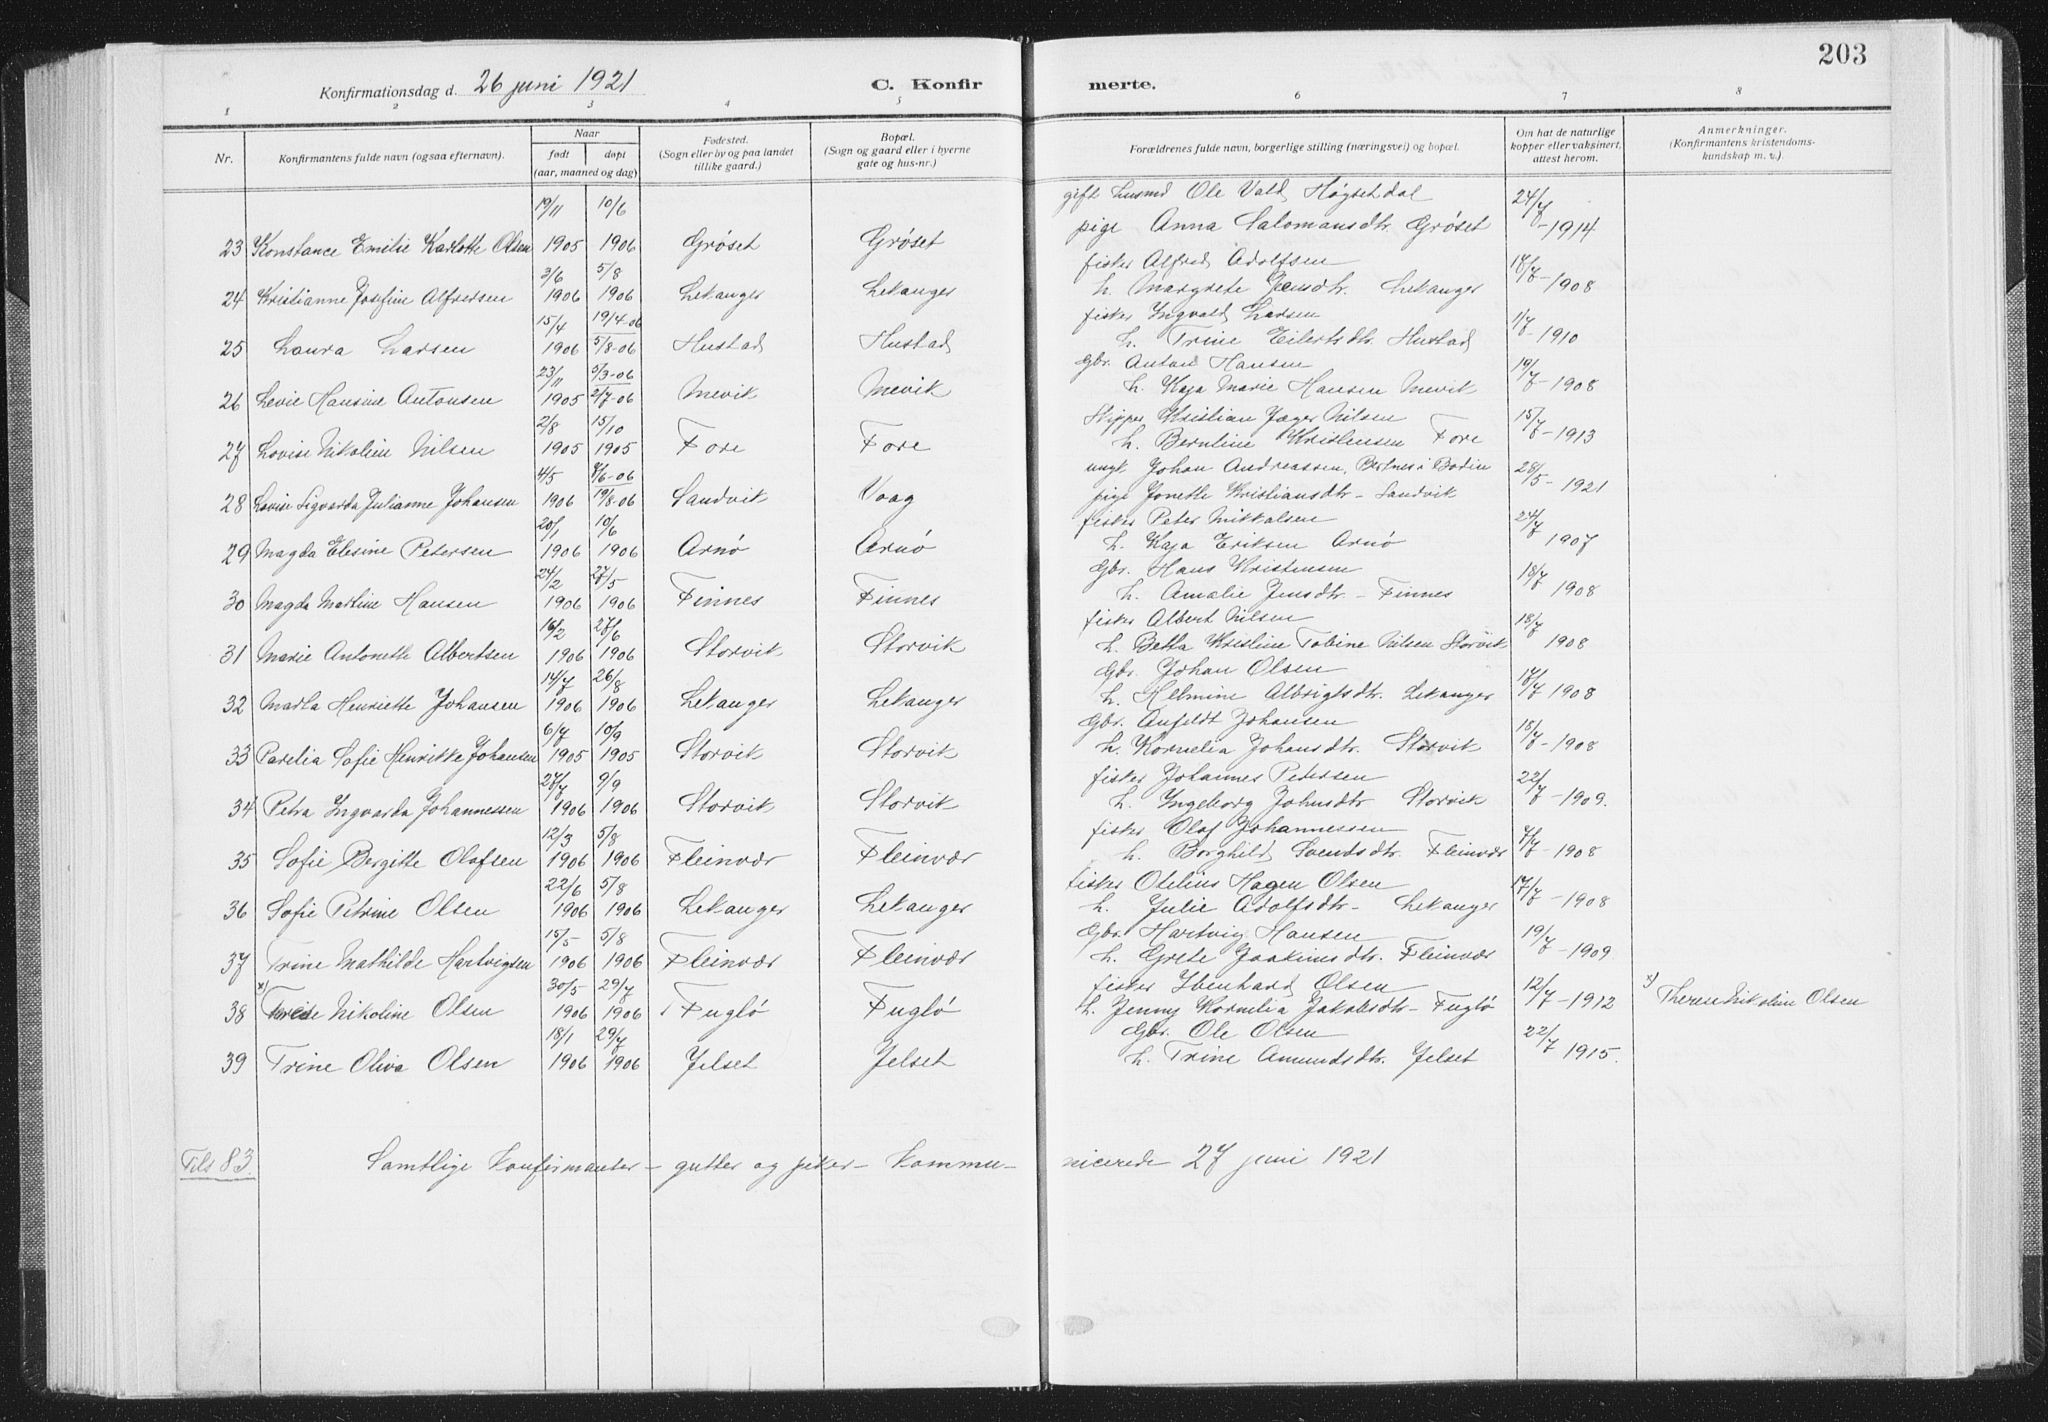 203
Konfirmationsdag d. 26 juni 1921
C. Konfir merte.
1 2 3 4 5 6 7 8
Nr.
Konfirmantens fulde navn (ogsaa efternavn).
Naar
født døpt
(aar, maaned og dag)
Fødested.
(Sogn eller by og paa landet
tillike gaard.)
Bopæl.
(Sogn og gaard eller i byerne
gate og hus-nr.)
Forældrenes fulde navn, borgerlige stilling (næringsvei) og bopæl.
Om hat de naturlige
kopper eller vaksinert,
attest herom.
Anmerkninger.
(Konfirmantens kristendoms-
kundskap m. v.)
19/11 10/6 gift husmd Ole Vald Høgsetdal 24/7
23 Konstance Emilie Karlotte Olsen 1905 1906 Grøset Grøset pige Anna Salomonsdtr. Grøset -1914
3/6 5/8 fisker Alfred Adolfsen 17/7
24 Kristianne Josefine Alfredsen 1906 1906 Lekanger Lekanger h. Margrete Jensdtr. Lekanger -1908
15/4 19/4-06 fisker Ingvald Larsen 1/7
25 Laura Larsen 1906 5/8-06 Hustad Hustad h. Trine Eilertsdtr. Hustad -1910
23/11 5/3-06 Gbr. Anton Hansen 19/7
26 Levie Hansine Antonsen 1905 2/7-06 Mevik Mevik h. Kaja Marie Hansen Mevik -1908
2/8 15/10 Skipper Kristian Jæger Nilsen 15/7
27 Lovise Nikoline Nilsen 1905 1905 Fore Fore h. Berntine Kristensen Fore -1913
4/5 7/6-06 ungk. Johan Andreassen, Bertnes i Bodin 28/5
28 Lovise Sigvarda Julianne Johansen 1906 19/8-06 Sandvik Vaag pige Jonette Kristiansdtr - Sandvik -1921
20/1 10/6 fisker Peter Mikkalsen 24/7
29 Magda Elesine Petersen 1906 1906 Arnø Arnø h. Kaja Eriksen Arnø 1907
24/2 27/5 Gbr. Hans Kristensen 18/7
30 Magda Martine Hansen 1906 1906 Finnes Finnes h. Amalie Jensdtr - Finnes 1908
16/2 27/6 fisker Albert Nilsen 18/7
31 Marie Antonette Albertsen 1906 1906 Storvik Storvik h. Betta Kristine Tobine Nilsen Storvik 1908
14/7 26/8 Gbr. Johan Olsen 17/7
32 Marta Henriette Johansen 1906 1906 Lekanger Lekanger h. Helmine Albrigtsdtr. Lekanger 1908
6/7 10/9 Gbr. Anfeldt Johansen 18/7
33 Parelia Sofie Henrikke Johansen 1905 1905 Storvik Storvik h. Kornelia Johansdtr. Storvik -1908
27/7 9/9 fisker Johannes Petersen 22/7
34 Petra Ingvarda Johannessen 1906 1906 Storvik Storvik h. Ingeborg Johnsdtr Storvik -1909.
12/3 5/8 fisker Olaf Johannessen 7/7
35 Sofie Bergitte Olafsen 1906 1906 Fleinvær Fleinvær h. Borghild Svendsdtr. Fleinvær -1908
22/6 5/8 fisker Otelius Hagen Olsen 17/7
36 Sofie Petrine Olsen 1906 1906 Lekanger Lekanger h. Julie Adolfsdtr - Lekanger -1908
15/5 5/8 Gbr. Hartvig Hansen 19/7
37 Trine Mathilde Hartvigsen 1906 1906 Fleinvær Fleinvær h. Grete Joakimsdtr. Fleinvær -1909
x) 30/5 29/7 fisker Ibenhard Olsen 12/7 x)
38 Nikoline Olsen 1906 1906 Fuglø Fuglø h. Jenny Kornelia Jakobsdtr - Fuglø -1912 Therese Nikoline Olsen
18/1 29/7 Gbr. Ole Olsen 22/7
39 Trine Oliva Olsen 1906 1906 Jelset Jelset h. Trine Amundsdtr. Jelset 1915.
Tils 83. Samtlige konfirmanter - gutter og piker - kommu- nicerede 27 juni 1921